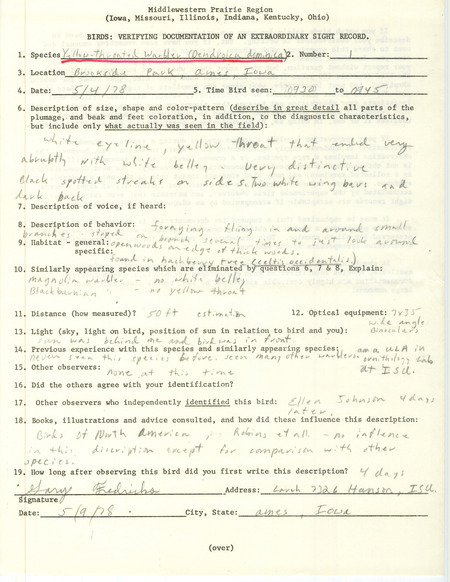 Middlewestern Prairie Region
(Iowa, Missouri, Illinois, Indiana, Kentucky, Ohio)
BIRDS: VERIFYING DOCUMENTATION OF AN EXTRAORDINARY SIGHT RECORD.
1. Species Yellow-throated Warbler (Dendroica dominica) 2. Number: 1
3. Location Brookside Park, Ames Iowa
4. Date: 5/4/78 5. Time Bird seen: 0930 to 0945
6. Description of size, shape and color-pattern (describe in great detail all parts of the
plumage, and beak and feet coloration, in addition, to the diagnostic characteristics,
but include only what actually was seen in the field):
White eyeline, yellow throat that ended very
abruptly with white belley - very distinctive
Black spotted streaks on sides. Two white wing bars and
dark back
7. Description of voice, if heard:
8. Description of behavior: foraging - fliing in and around small
branches - stoped on branch several times to just look around
9. Habitat - general: open woods on edge of thick woods.
specific: found in hackberry tree (celtis occidentalis)
10. Similarly appearing species which are eliminated by questions 6, 7 & 8, Explain:
magnolia warbler - no white belley
Blackburnian " - no yellow throat
11. Distance (how measured)? 50 ft estimation 12. Optical equipment: 7x35
wide angle
Binoculars
13. Light (sky, light on bird, position of sun in relation to bird and you):
sun was behind me and bird was in front.
14. Previous experience with this species and similarly appearing species: am a
Never seen this species before. seen many other warblers. ornithology
at ISU.
15. Other observers: None at this time
16. Did the others agree with your identification?
17. Other observers who independently identified this bird: Ellen Johnson 4 days
later.
18. Books, illustrations and advice consulted, and how did these influence this description:
Birds of North America, Robins et all - no inflence
in this discription except for comparison with other
species.
19. How long after observing this bird did you first write this description? 4 days
Gary Fredricks Address: 7726 Hanson, ISU
Signature
Date: 5/9/78 City, State: Ames, Iowa
(over)